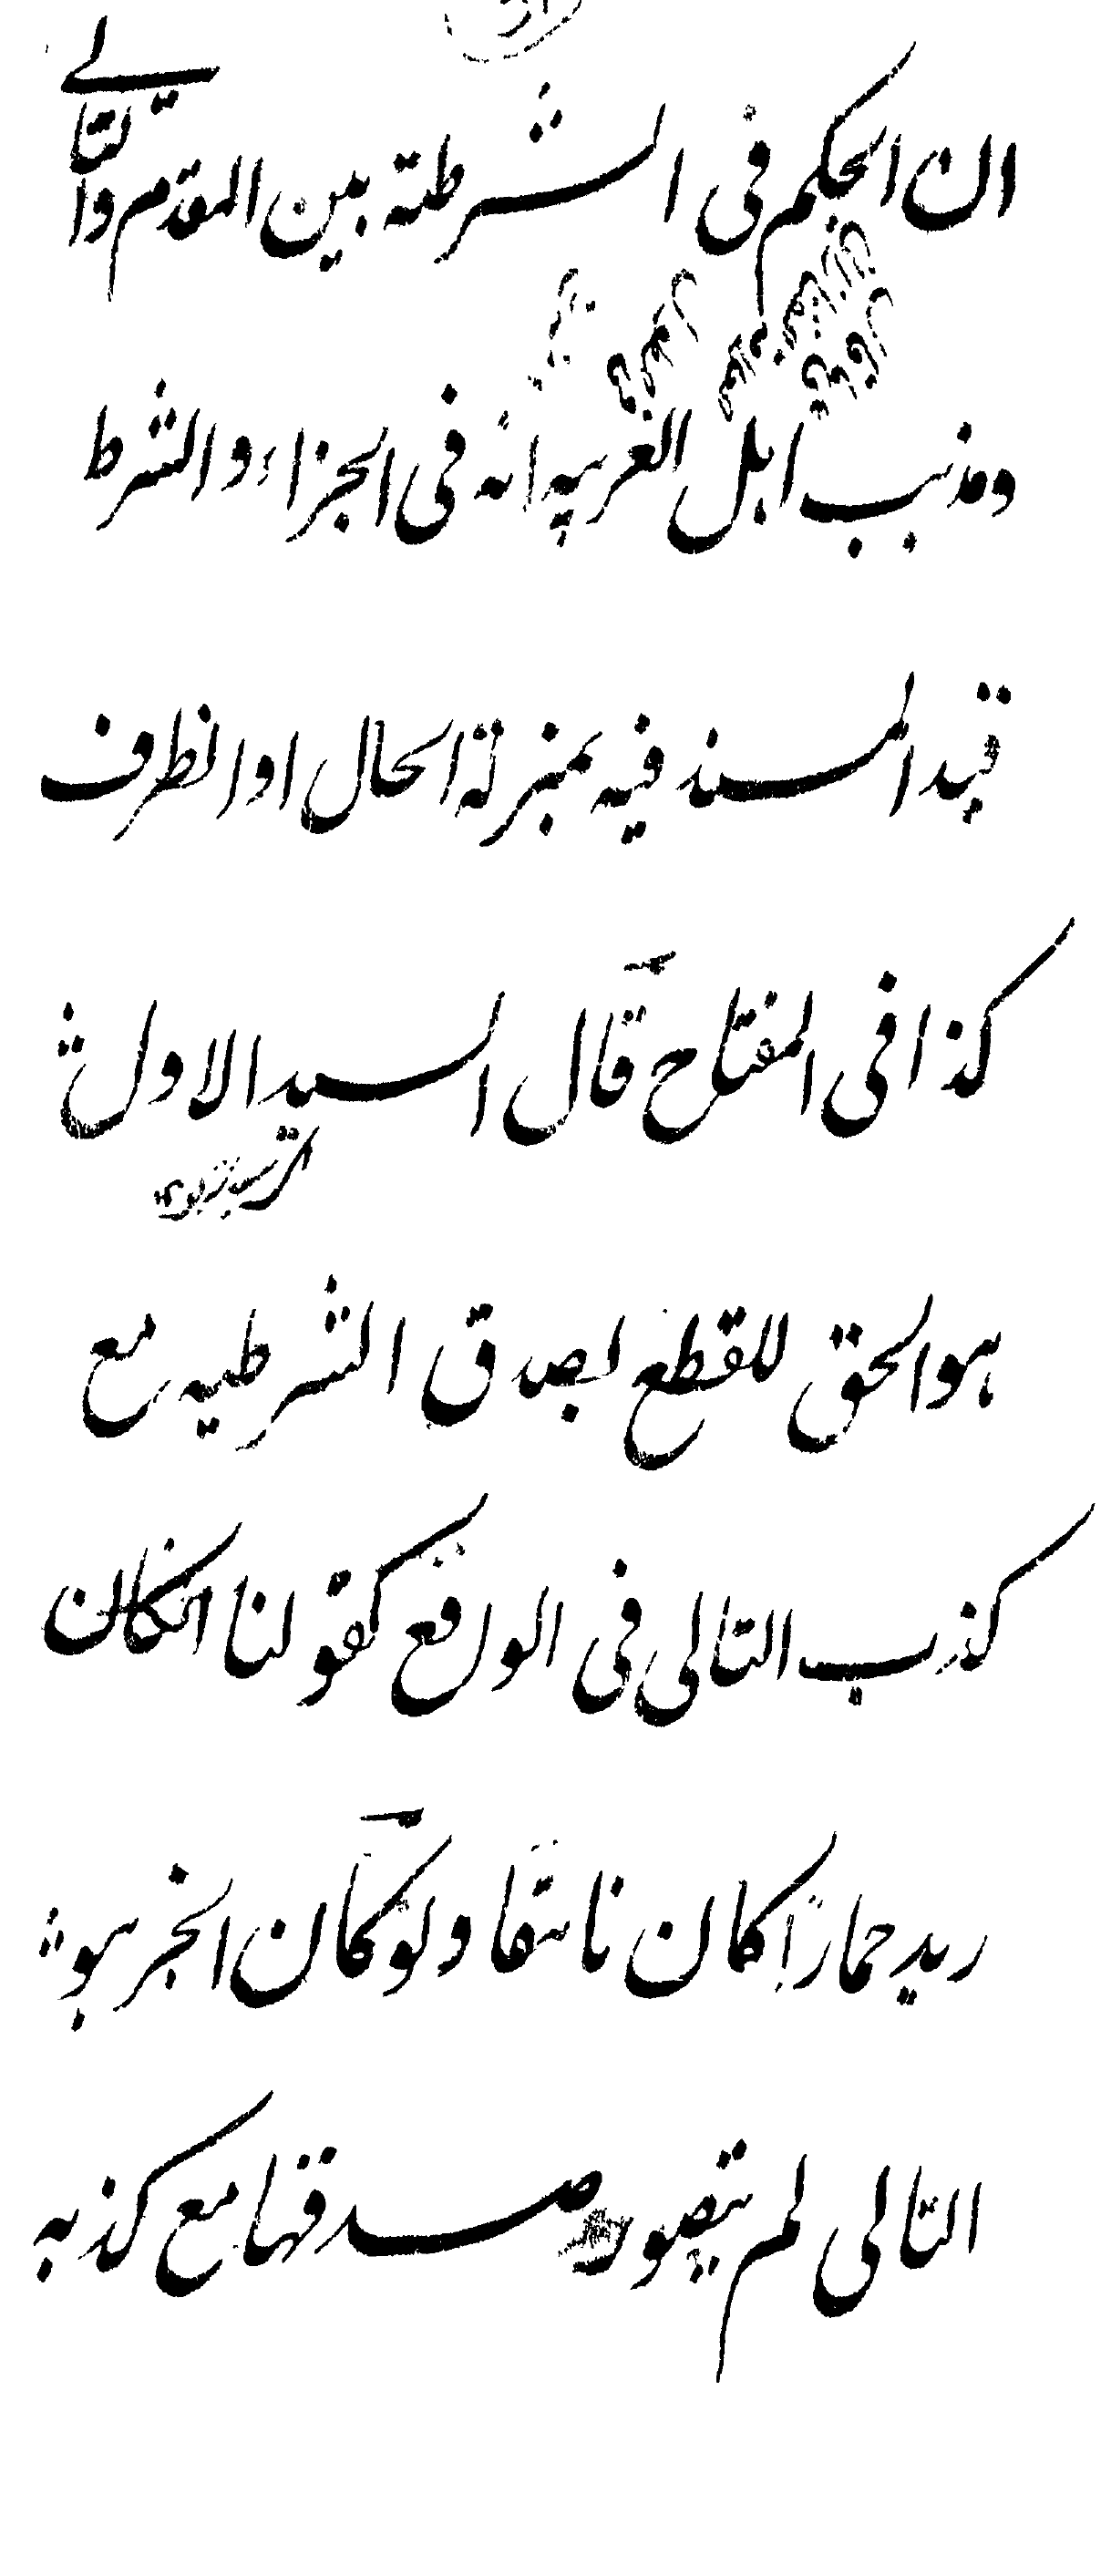 ان الحكم فى الشرطية بين المقدم والتالى
ومذهب اهل العربيه انه فى الجزاء والشرط
قيد المسند فيه بمنزلة الحال او الظرف
كذا فى المفتاح قال السيد الاول
هو الحق للقطع بصدق الشرطيه مع
كذب التالى فى الواقع كقولنا انكان
زيد حمارًا كان ناهقا ولو كان الخبر هو
التالى لم يتصور صدقها مع كذبه